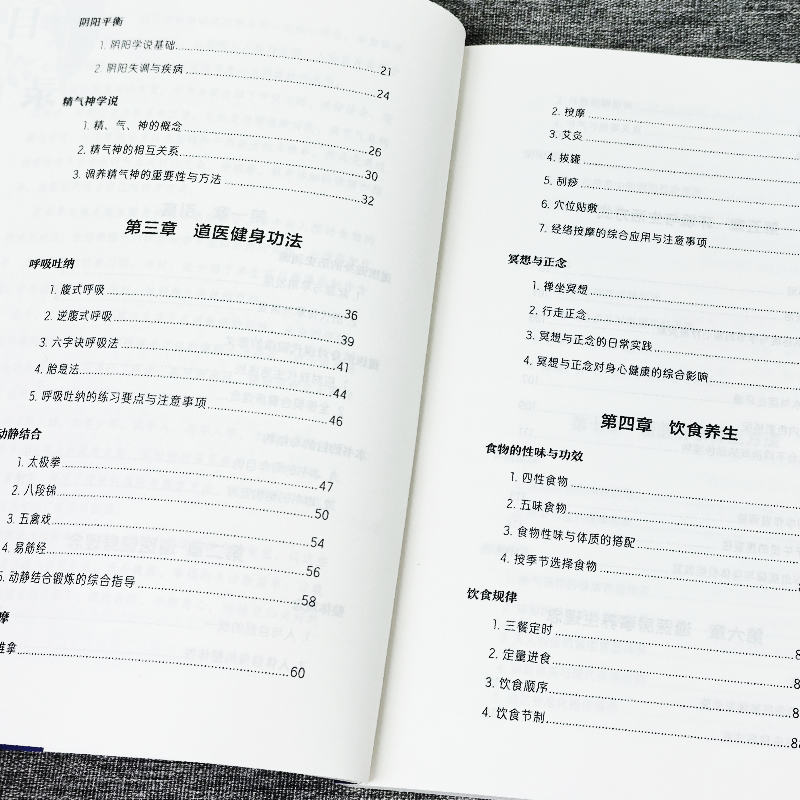 阴阳平衡
1. 阴阳学说基础 21
2. 阴阳失调与疾病 24
精气神学说
1. 精、气、神的概念 26
2. 精气神的相互关系 30
3. 调养精气神的重要性与方法 32
第三章 道医健身功法
呼吸吐纳
1. 腹式呼吸 36
2. 逆腹式呼吸 39
3. 六字诀呼吸法 41
4. 胎息法 44
5. 呼吸吐纳的练习要点与注意事项 46
动静结合
1. 太极拳 47
2. 八段锦 50
3. 五禽戏 54
4. 易筋经 56
5. 动静结合锻炼的综合指导 58
摩
推拿 60
2. 按摩
3. 艾灸
4. 拔罐
5. 刮痧
6. 穴位贴敷
7. 经络按摩的综合应用与注意事项
冥想与正念
1. 禅坐冥想
2. 行走正念
3. 冥想与正念的日常实践
4. 冥想与正念对身心健康的综合影响
第四章 饮食养生
食物的性味与功效
1. 四性食物
2. 五味食物
3. 食物性味与体质的搭配
4. 按季节选择食物
饮食规律
1. 三餐定时
2. 定量进食
3. 饮食顺序
4. 饮食节制